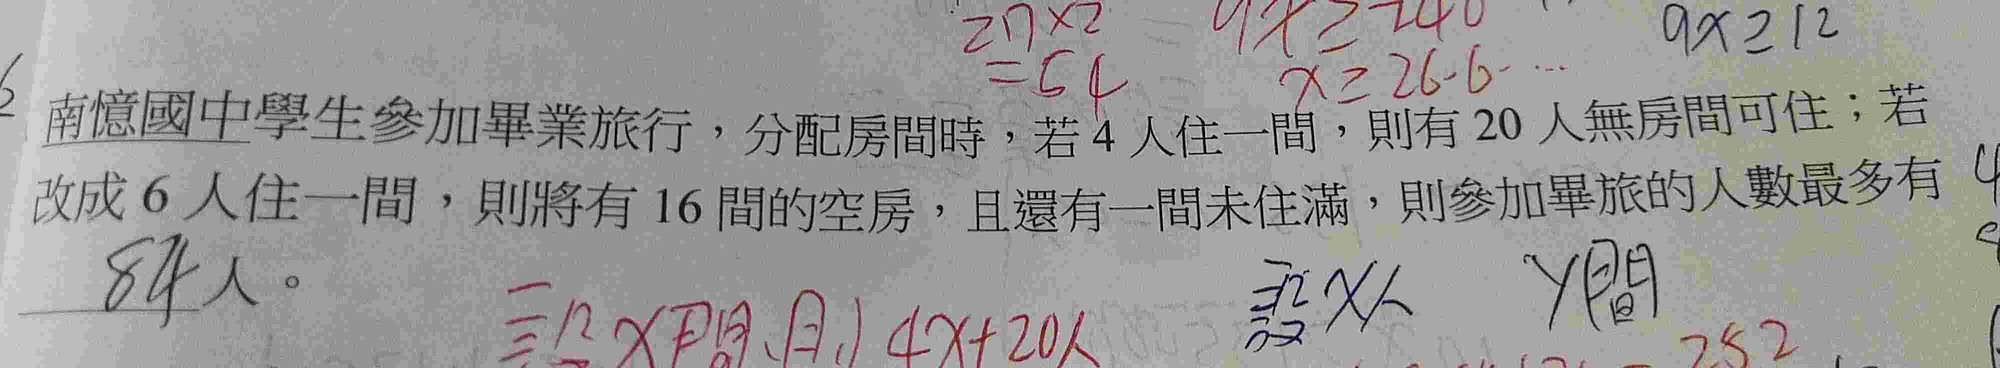 27×2 9x≥240 9x≥12
=54 x≥26.6…
南憶國中學生參加畢業旅行，分配房間時，若 4 人住一間，則有 20 人無房間可住；若
改成 6 人住一間，則將有 16 間的空房，且還有一間未住滿，則參加畢旅的人數最多有
84人。
設x間，則4x+20人 設x人 y間
252